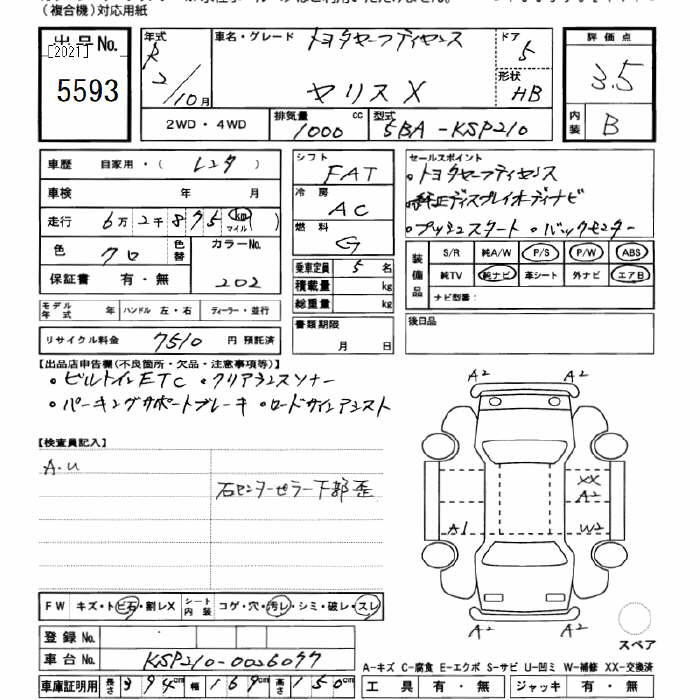 (複合機)対応用紙
出品No.
[2021]
5593
年式
R
2/10月
車名・グレード
トヨタセーフティセンス
ヤリス X
ドア
5
形状
HB
2WD・4WD
排気量
1000 cc
型式
5BA-KSP210
評価点
3.5
内装
B
車歴 自家用・( レンタ )
車検 年 月
走行 6万2千875 km マイル ( )
色 クロ 色替 カラーNo. 202
保証書 有・無
モデル年式 年 ハンドル 左・右 ディーラー・並行
リサイクル料金 7510 円 預託済
シフト FAT
冷房 AC
燃料 G
乗車定員 5 名
積載量 kg
総重量 kg
書類期限
月 日
セールスポイント
・トヨタセーフティセンス
・純正ディスプレイオーディオナビ
・プッシュスタート ・バックモニター
装備品
S/R 純A/W P/S P/W ABS
純TV 純ナビ 革シート 外ナビ エアB
ナビ型番:
後日品
【出品店申告欄(不良箇所・欠品・注意事項等)】
・ビルトインETC ・クリアランスソナー
・パーキングサポートブレーキ ・ロードサインアシスト
【検査員記入】
A.U
右センターピラー下部歪
A2 A2
XX
A2
A1 W2
A2 A2
スペア
FW キズ・トビ石・割レX シート内装 コゲ・穴・汚レ・シミ・破レ・スレ
登録No.
車台No. KSP210-0026077
車庫証明用 長さ 394cm 幅 169cm 高さ 150cm
A-キズ C-腐食 E-エクボ S-サビ U-凹ミ W-補修 XX-交換済
工具 有・無 ジャッキ 有・無